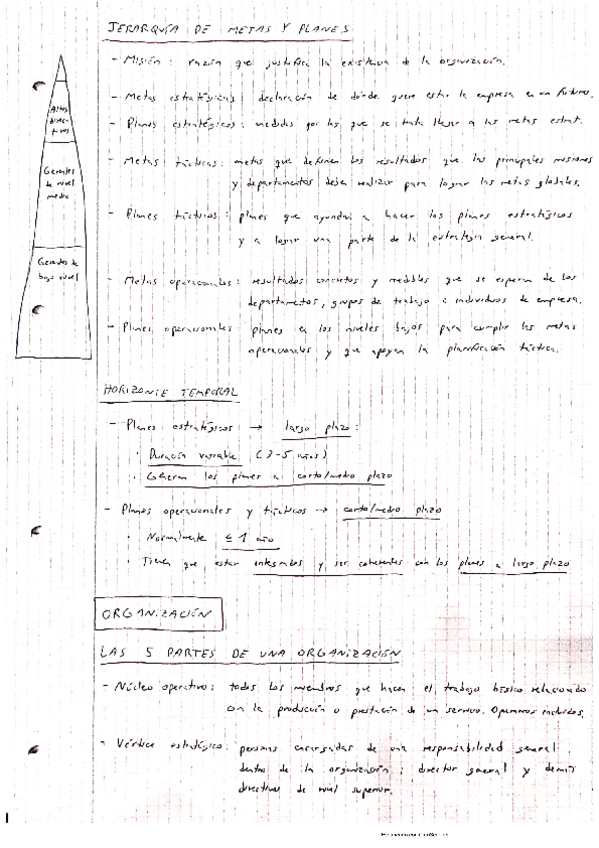 JERARQUÍA DE METAS Y PLANES
- Misión: razón que justifica la existencia de la organización.
- Metas estratégicas: declaración de dónde quiere estar la empresa en un futuro.
- Planes estratégicos: medidas por las que se trata llegar a las metas estrat.
- Metas tácticas: metas que definen los resultados que las principales
y departamentos deben realizar para lograr las metas globales.
- Planes tácticos: planes que ayudan a hacer los planes estratégicos
y a lograr una parte de la estrategia general.
- Metas operacionales: resultados concretos y medibles que se esperan de los
departamentos, grupos de trabajo e individuos de empresa.
- Planes operacionales planes en los niveles bajos para cumplir las metas
operacionales y que apoyan la planificación táctica.
Altos
direc-
tivos
Gerentes
de nivel
medio
Gerentes de
bajo nivel
HORIZONTE TEMPORAL
- Planes estratégicos → largo plazo:
· Duración variable (3-5 años)
· Generan los planes a corto/medio plazo
- Planes operacionales y tácticos → corto/medio plazo
· Normalmente ≤ 1 año
· Tienen que estar integrados y ser coherentes con los planes a largo plazo
ORGANIZACIÓN
LAS 5 PARTES DE UNA ORGANIZACIÓN
- Núcleo operativo: todos los miembros que hacen el trabajo básico relacionado
con la producción o prestación de un servicio. Operarios incluidos.
- Vértice estratégico: personas encargadas de una responsabilidad general
dentro de la organización: director general y demás
directivos de nivel superior.